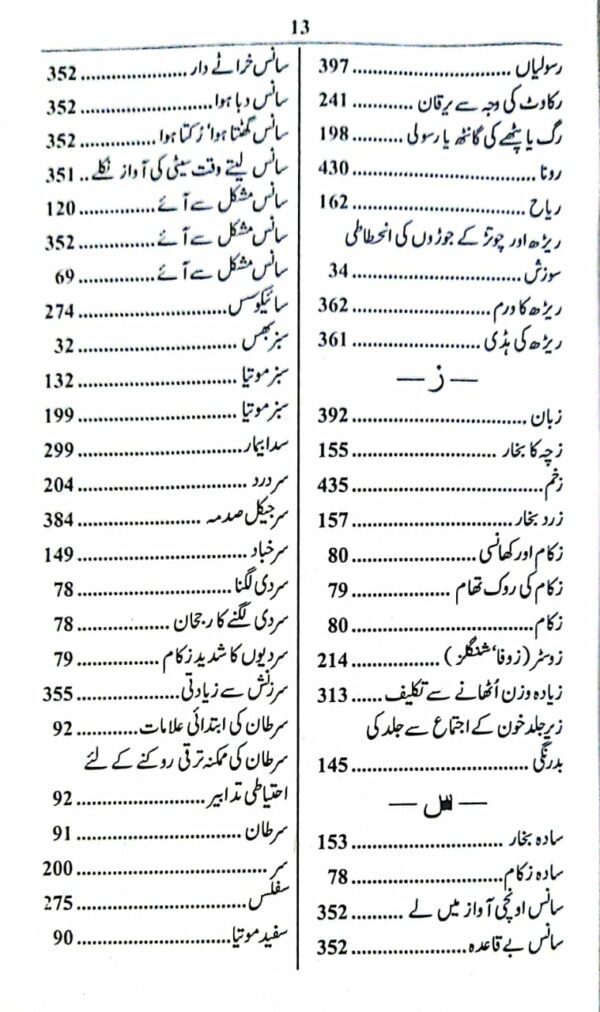 13
رسولیاں ............................ 397
رکاوٹ کی وجہ سے یرقان ............ 241
رگ یا پٹھے کی گانٹھ یا رسولی .......... 198
رونا ............................ 430
ریاح ............................ 162
ریڑھ اور چوتڑ کے جوڑوں کی انحطاطی
سوزش ............................ 34
ریڑھ کا ورم ............................ 362
ریڑھ کی ہڈی ............................ 361
— ز —
زبان ............................ 392
زچہ کا بخار ............................ 155
زخم ............................ 435
زرد بخار ............................ 157
زکام اور کھانسی ...................... 80
زکام کی روک تھام .................. 79
زکام ............................ 80
زوسٹر (زوفا، شنگلز) .................. 214
زیادہ وزن اُٹھانے سے تکلیف ...... 313
زیر جلد خون کے اجتماع سے جلد کی
بدرنگی ............................ 145
— س —
سادہ بخار ............................ 153
سادہ زکام ............................ 78
سانس اونچی آواز میں لے .......... 352
سانس بے قاعدہ .................... 352
سانس خراٹے دار .................. 352
سانس دبا ہوا ...................... 352
سانس گھٹتا ہوا، رُکتا ہوا ............ 352
سانس لیتے وقت سیٹی کی آواز نکلے .. 351
سانس مشکل سے آئے .............. 120
سانس مشکل سے آئے .............. 352
سانس مشکل سے آئے .............. 69
سائیکوسس .......................... 274
سبز بھس .......................... 32
سبز موتیا .......................... 132
سبز موتیا .......................... 199
سدا بیمار .......................... 299
سر درد ............................ 204
سرجیکل صدمہ ...................... 384
سرخباد ............................ 149
سردی لگنا .......................... 78
سردی لگنے کا رجحان ................ 78
سردیوں کا شدید زکام .............. 79
سرزنش سے زیادتی .................. 355
سرطان کی ابتدائی علامات ............ 92
سرطان کی ممکنہ ترقی روکنے کے لئے
احتیاطی تدابیر ...................... 92
سرطان ............................ 91
سر ................................ 200
سفلس .............................. 275
سفید موتیا .......................... 90